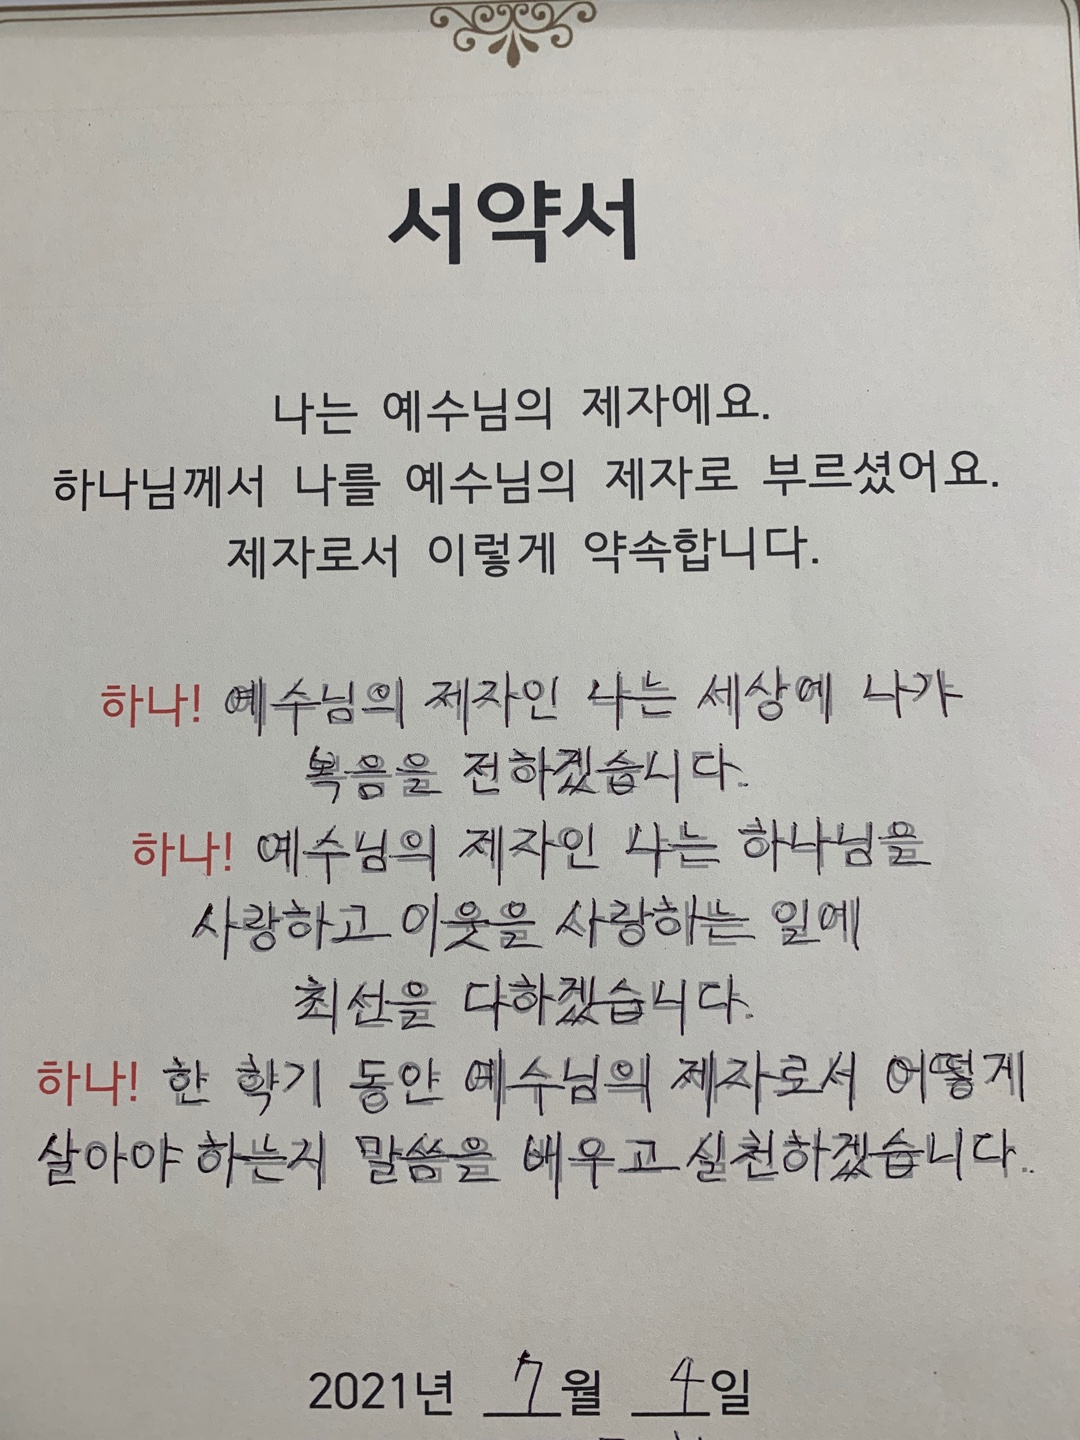 서약서
나는 예수님의 제자에요.
하나님께서 나를 예수님의 제자로 부르셨어요.
제자로서 이렇게 약속합니다.
하나! 예수님의 제자인 나는 세상에 나가
복음을 전하겠습니다.
하나! 예수님의 제자인 나는 하나님을
사랑하고 이웃을 사랑하는 일에
최선을 다하겠습니다.
하나! 한 학기 동안 예수님의 제자로서 어떻게
살아야 하는지 말씀을 배우고 실천하겠습니다.
2021년 7월 4일